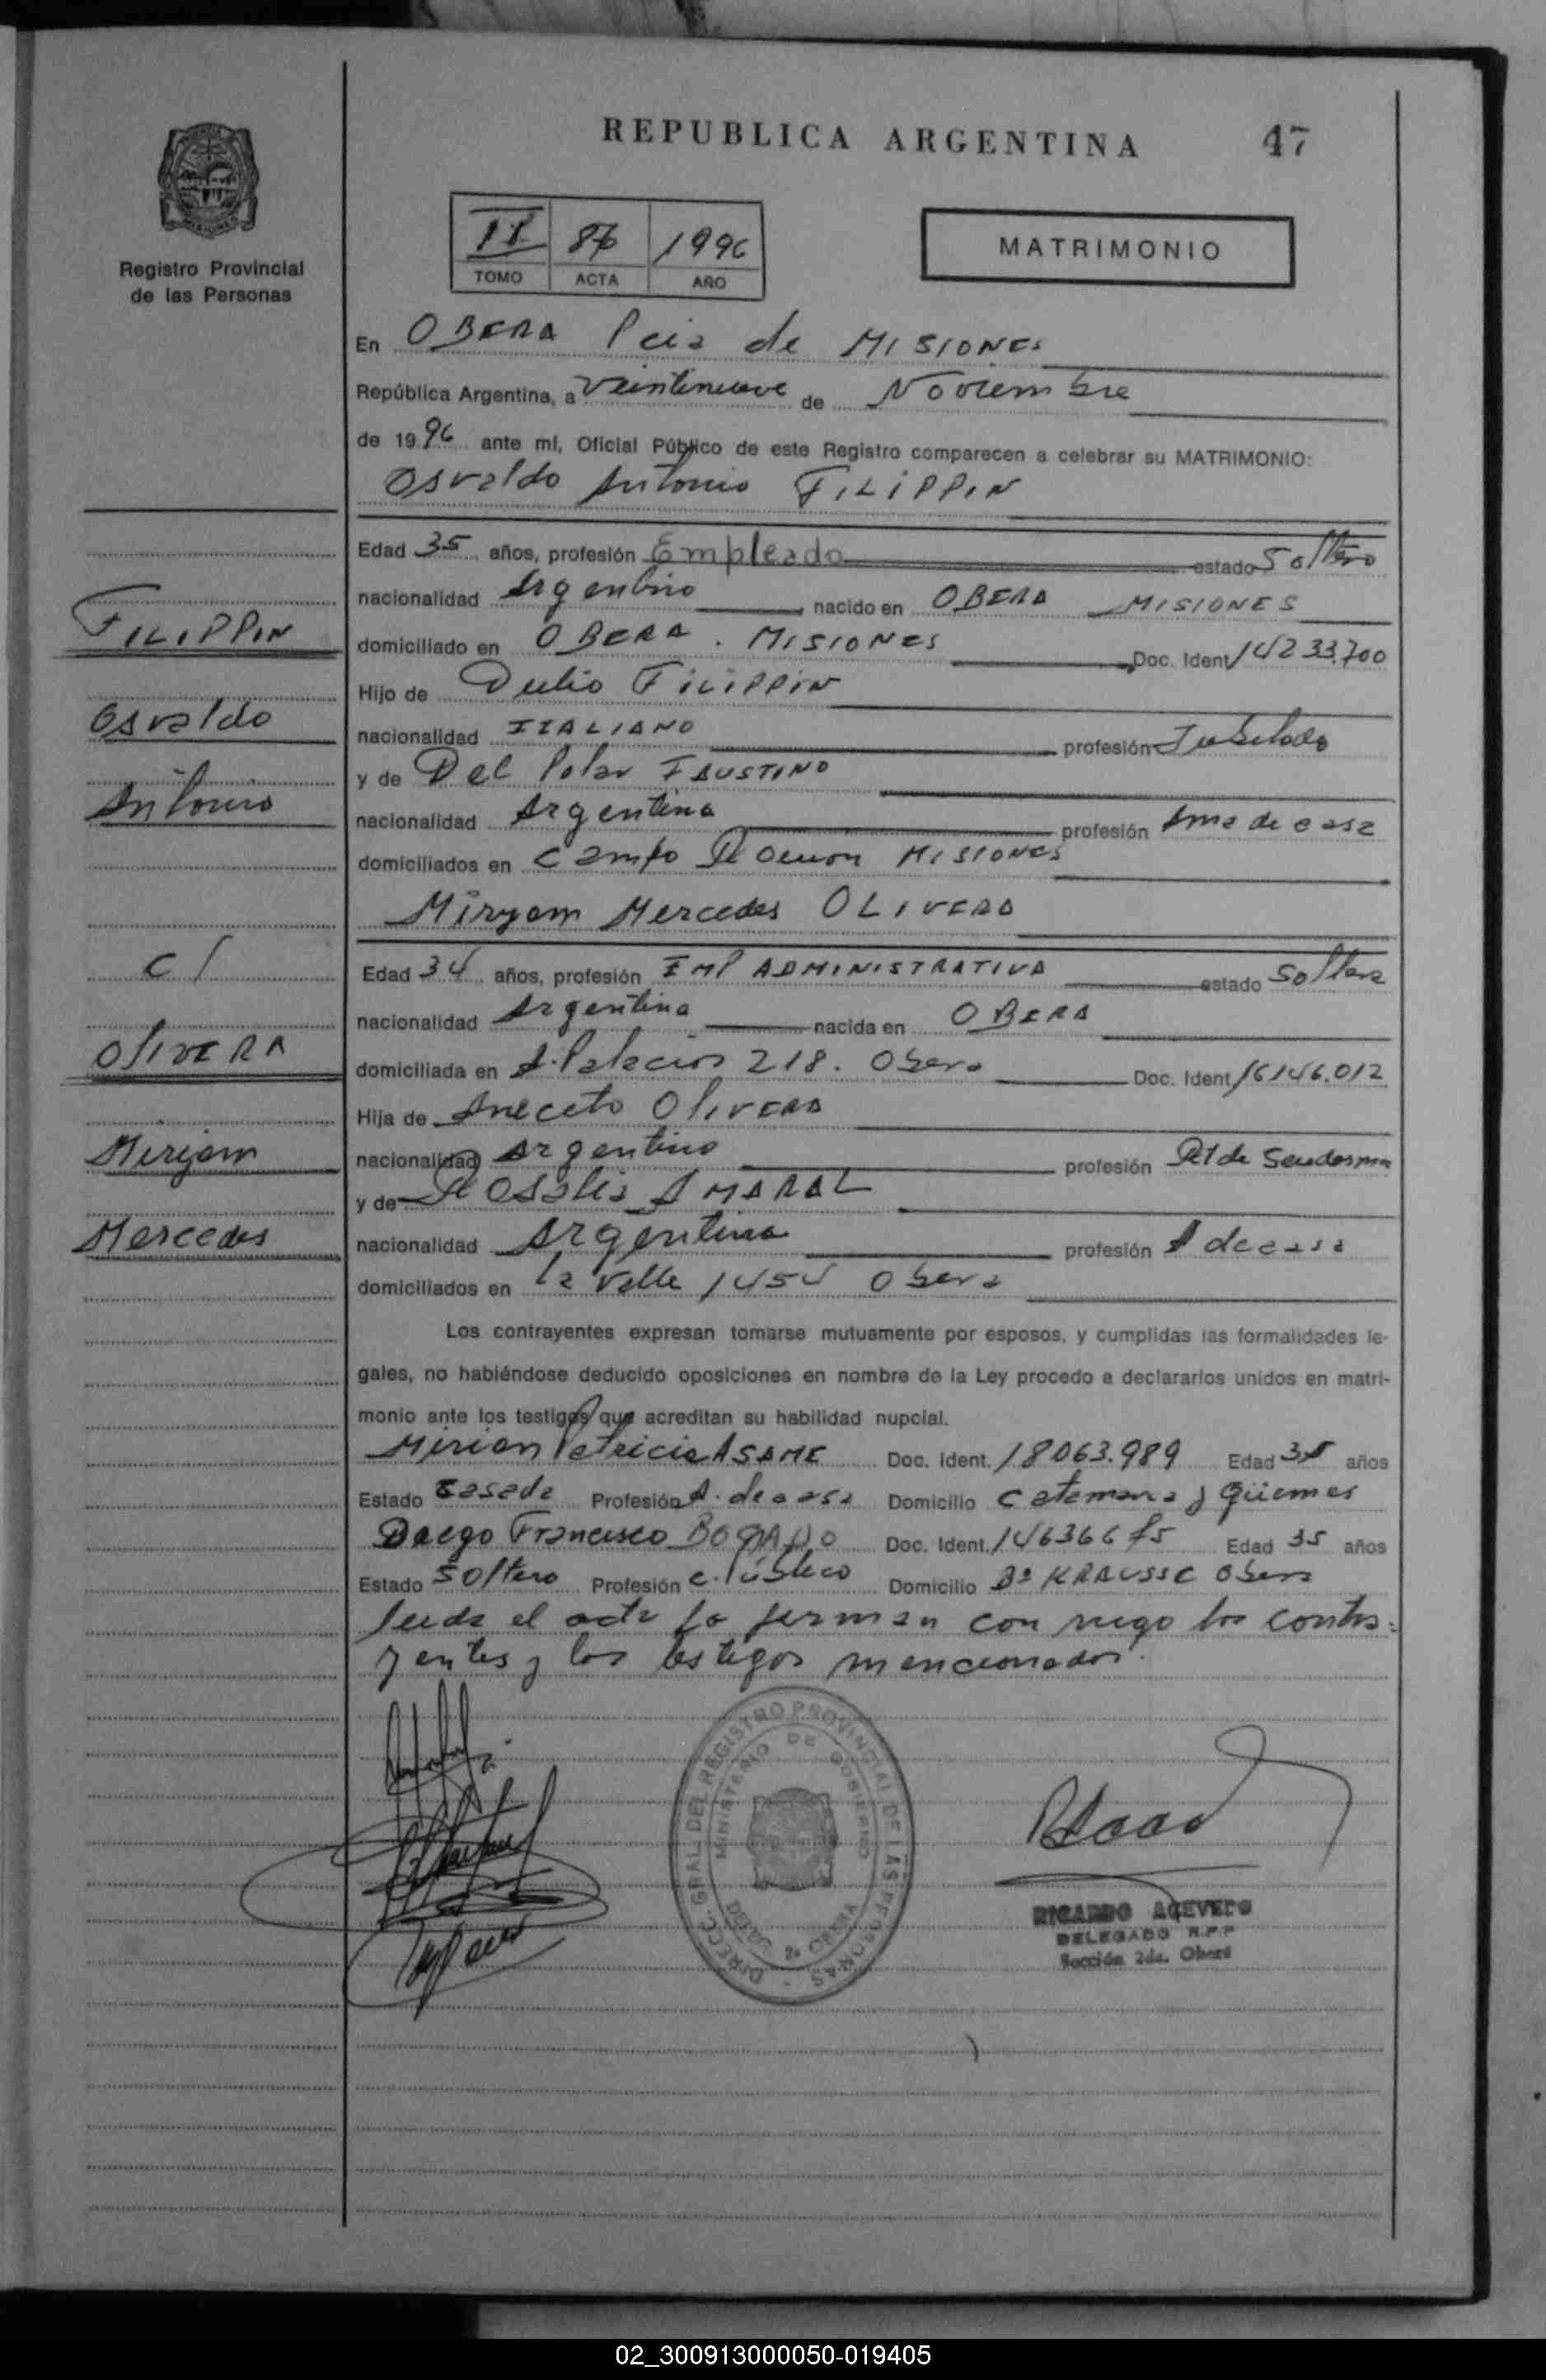 REPUBLICA ARGENTINA 47
Registro Provincial
de las Personas
II 86 1996
TOMO ACTA AÑO
MATRIMONIO
En OBERA Pcia de MISIONES
República Argentina, a veintinueve de Noviembre
de 1996 ante mí, Oficial Público de este Registro comparecen a celebrar su MATRIMONIO:
Osvaldo Antonio FILIPPIN
Edad 35 años, profesión Empleado estado Soltero
nacionalidad Argentino nacido en OBERA MISIONES
FILIPPIN
domiciliado en OBERA . MISIONES Doc. Ident 14233.700
Hijo de Dulio FILIPPIN
Osvaldo
nacionalidad ITALIANO profesión Jubilado
y de Del Pilar FAUSTINO
Antonio
nacionalidad Argentina profesión Ama de casa
domiciliados en Campo Ramon MISIONES
Miryam Mercedes OLIVERA
C/
Edad 34 años, profesión EMP ADMINISTRATIVA estado Soltera
nacionalidad Argentina nacida en OBERA
OLIVERA
domiciliada en A. Palacios 218. Obera Doc. Ident 16146.012
Hija de Aneceto OLIVERA
Miryam
nacionalidad Argentino profesión Ret de Gendarme
y de Rosalia AMARAL
Mercedes
nacionalidad Argentina profesión A de casa
domiciliados en La Valle 1454 Obera
Los contrayentes expresan tomarse mutuamente por esposos, y cumplidas las formalidades le-
gales, no habiéndose deducido oposiciones en nombre de la Ley procedo a declararlos unidos en matri-
monio ante los testigos que acreditan su habilidad nupcial.
Mirian Patricia ASAME Doc. Ident. 18063.989 Edad años
Estado Casada Profesión A. de casa Domicilio Catamarca y Güemes
Diego Francisco BOGADO Doc. Ident. Edad 35 años
Estado Soltero Profesión e. Público Domicilio Bº KRAUSSE Obera
leida el acta la firman con migo los contra=
yentes y los testigos mencionados.
DIRECC. GRAL. DEL REGISTRO PROVINCIAL DE LAS PERSONAS
MINISTERIO DE GOBIERNO
2ª OBERA
RICARDO ACEVEDO
DELEGADO R.P.P
Sección 2da. Oberá
02_300913000050-019405